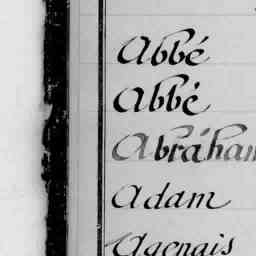 Abbé
Abbé
Abraham
Adam
Agenais